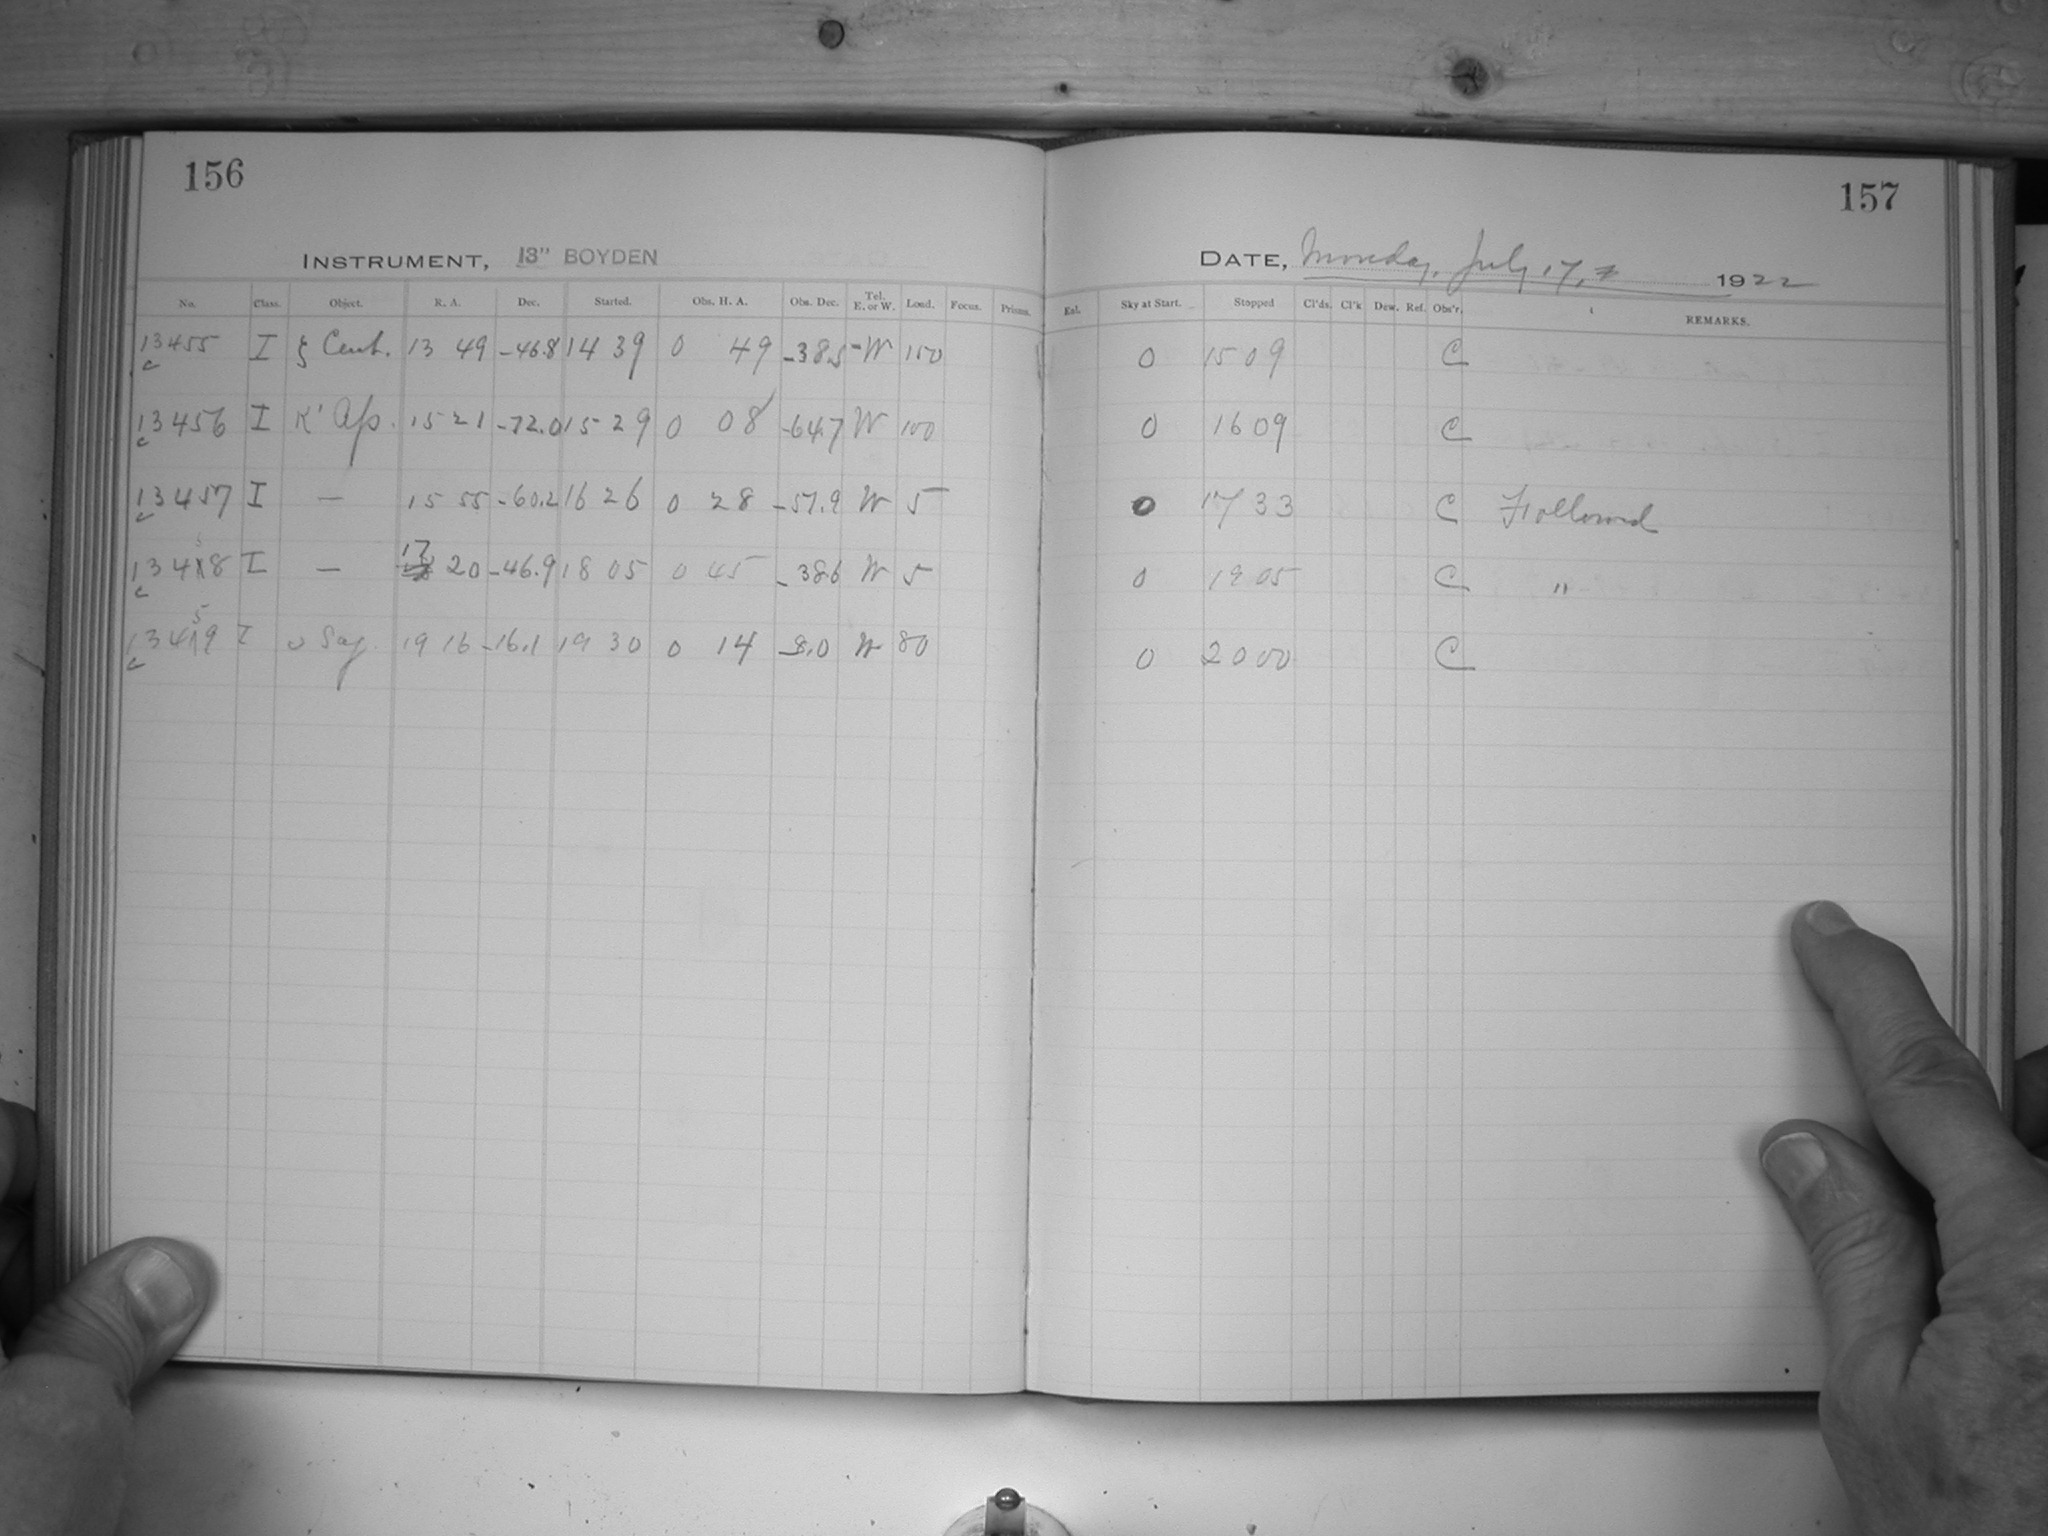 156
INSTRUMENT, 13" BOYDEN
No. Class. Object. R. A. Dec. Started. Obs. H. A. Obs. Dec. Tel. E. or W. Load. Focus. Prisms.
13455 I ξ Cent. 13 49 -46.8 14 39 0 49 -38.5 -W 150
c
13456 I K' Aps. 15 21 -72.0 15 29 0 08 -64.7 W 100
c
13457 I — 15 55 -60.2 16 26 0 28 -57.9 W 5
c
13458 I — 17 20 -46.9 18 05 0 45 -38.6 W 5
c
13459 I υ Sag. 19 16 -16.1 19 30 0 14 -8.0 W 80
c
157
DATE, Monday, July 17, 1922
Exl. Sky at Start. Stopped Cl'ds. Cl'k Dew. Ref. Obs'r. REMARKS.
0 15 09 C
0 16 09 C
0 17 33 C Followed
0 19 05 C "
0 20 00 C